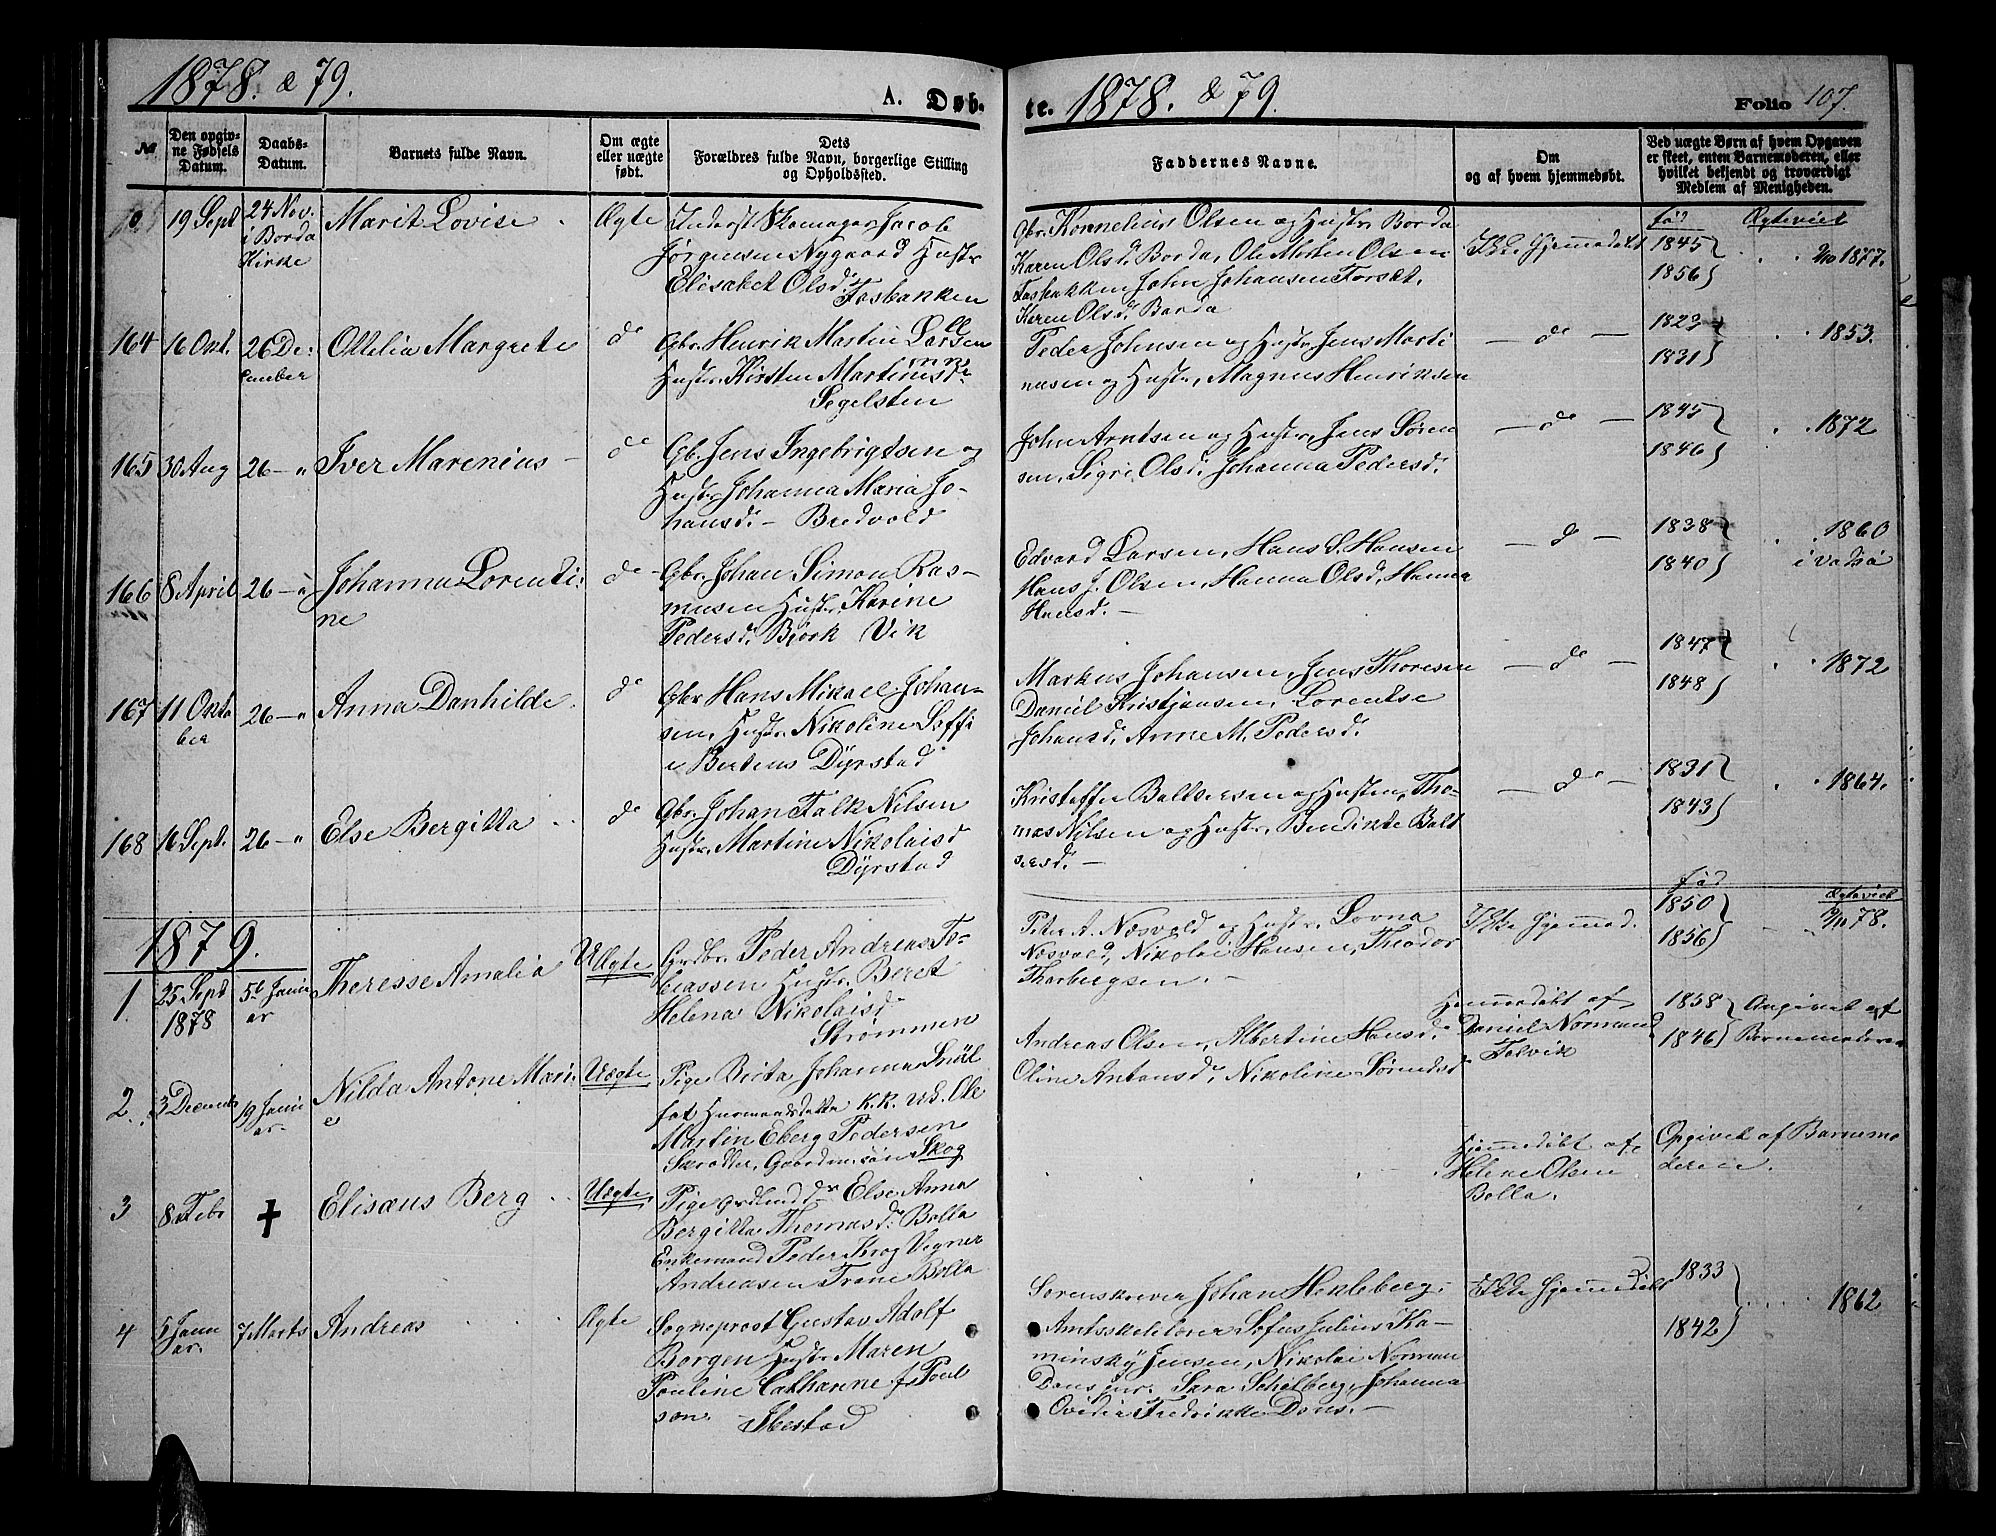 1878. & 79.
A. Døb-
te. 1878. & 79.
Folio 107.
№
Den opgiv-
ne Fødsels
Datum.
Daabs-
Datum.
Barnets fulde Navn.
Om ægte
eller uægte
født.
Dets
Forældres fulde Navn, borgerlige Stilling
og Opholdssted.
Faddernes Navne.
Om
og af hvem hjemmedøbt.
Ved uægte Børn af hvem Opgaven
er skeet, enten Barnemoderen, eller
hvilket bekjendt og troværdigt
Medlem af Menigheden.
19 Sept
24 Nov.
i Borda
Kirke
Marit Lovise
Ægte
Skomager Jacob
Jørgensen Nygaard Hustr
Elisabet Olsd.
Fosbakken
Gbr. Kornelius Olsen og Hustr. Borda
Karen Olsd. Borda, Ole Morten Olsen
Fosbakken John Johansen Forset,
Karen Olsd. Borda
Ikke Hjemmedøbt
fød
1845
1856
Ægteviet
1877.
164
16 Okt.
26 De-
cember
Ottelia Margrete
do
Gbr. Henrik Martin Larsen
Hustr. Kirsten Martinusd.
Segelsten
Peder Johnsen og Hustr, Jens Marti
nusen og Hustr, Magnus Henriksen
— do —
1823
1831
1853.
165
30 Aug
26 — "
Iver Marenius —
do
Gb. Jens Ingebrigtsen og
Hustr Johanna Maria Jo-
hansd. — Bredvold
John Arntsen og Hustr, Jens Søren
sen, Sigri Olsd. Johanna Pedersd.
— do —
1845
1846
1872
166
8 April
26 — "
Johanna Lorenti-
ne
do
Gbr. Johan Simon Ras-
musen Hustr. Karine
Pedersd. Bjørk Vik
Edvard Larsen, Hans S. Hansen
Hans J. Olsen, Hanna Olsd, Hanna
Hansd. —
— do —
1838
1840
1860
i Vadsø
167
11 Okto
ber
26 — "
Anna Danhilde
do
Gbr Hans Mikael Johan-
sen, Hustr. Nikoline Soffi
e Bertens Dyrstad
Markus Johansen, Jens Thoresen
Daniel Kristjansen, Lorentse
Johansd, Anne M. Pedersd.
— do —
1847
1848
1872
168
16 Sept.
26 — "
Else Bergitta
do
Gbr. Johan Falk Nilsen
Hustr. Martine Nikolaisd
Dyrstad
Kristoffer Baltsersen og Hustru, Tho-
mas Nilsen og Hustr, Bendikte Balt
sersd. —
— do —
1831
1843
1864.
1879.
1
25 Sept
1878
5te Janu
ar
Theresse Amalia
Uægte
Grdbr. Peder Andreas To-
biassen Hustr. Beret
Helena Nikolaisd
Strømmen
Peter A. Næsvold og Hustr. Lovna
Næsvold, Nikolai Hansen, Theodor
Thorbergsen. —
Ikke Hjemmed.
fød
1850
1856
Ægteviet
78.
2
3 Decemb
19 Janu
ar.
Nilda Antone Mari-
e
Uægte
Pige Birta Johanna
K.K. U.S. Ole
Martin Eberg Pedersen
Skrædder, Gaardm.søn Skog
Andreas Olsen, Albertine Hansd.
Oline Antonsd, Nikoline Sørensd
Hjemmedøbt af
Daniel Normand
Følvik
1858
1846
Angivet af
Barnemoderen
3
8 Febr
✝
Elisæus Berg
Uægte.
Pige Else Anna
Bergitta Thomasd. Bolla
Enkemand Peder Krog Vegner
Andreasen Trane Bolla
Hjemmedøbt af
Helene Olsen
Bolla.
Opgivet af Barnemo
deren.
4
5 Janu
ar.
7 Marts
Andreas
Ægte
Sogneprest Gustav Adolf
Borgen Hustr Maren
Pouline Cathanne f. Poul
sen. Ibestad
Sorenskriver Johan Henleberg,
Amtsskolelærer Sofus Julius Ka-
minsky Jensen, Nikolai Norman
Dons jnr. Sara Schelberg, Johanna
Ovidia Fredrikke Dons. —
Ikke Hjemmedøbt
1833
1842
1862